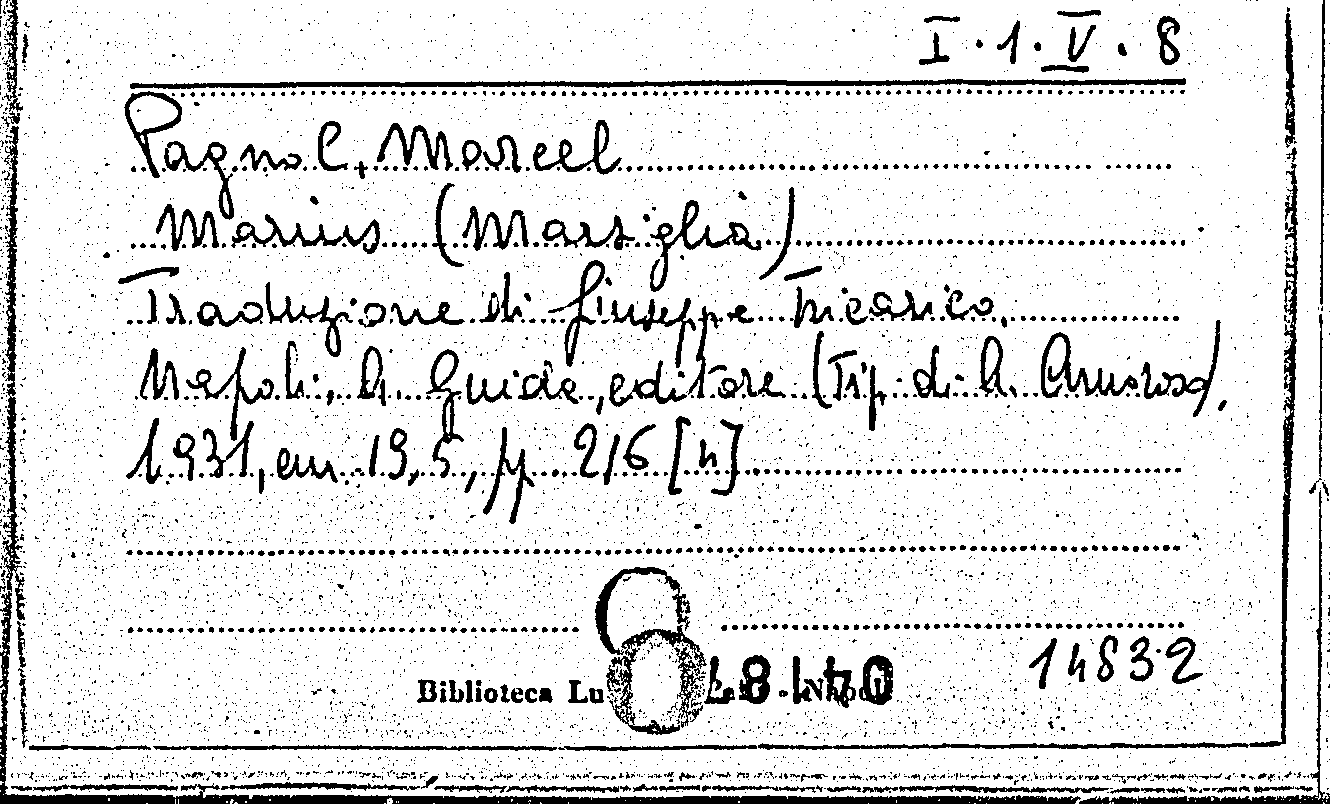 I. 1. V. 8
Pagnol, Marcel
Marius (Marsiglia)
Traduzione di Giuseppe Tricarico.
Napoli, A. Guida, editore (Tip. di A. Amoroso),
1931, cm. 19,5, pp. 216 [n]
14832
Biblioteca Lu